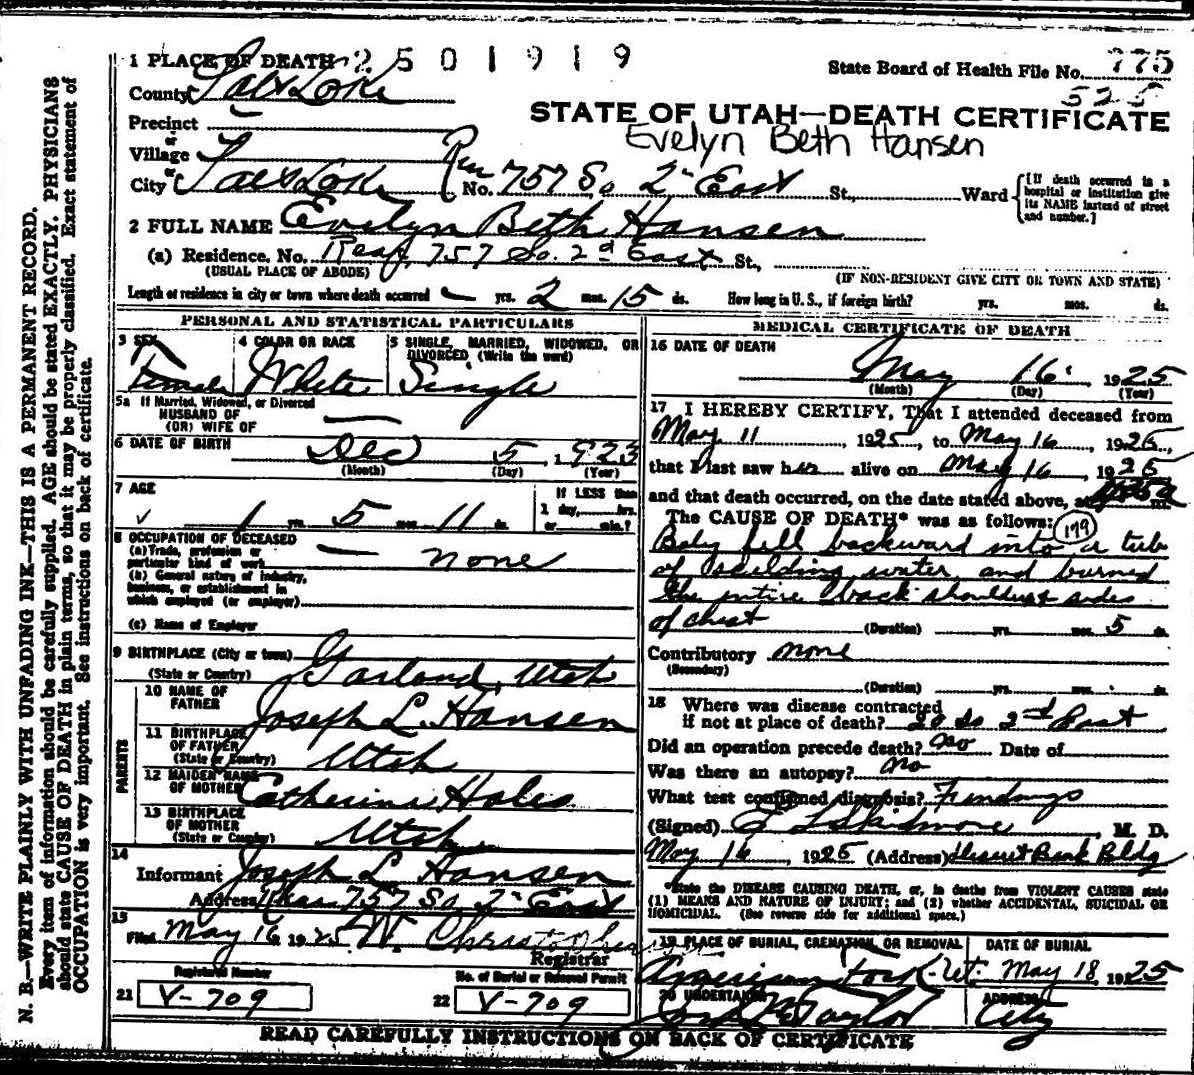 N. B.—WRITE PLAINLY WITH UNFADING INK—THIS IS A PERMANENT RECORD.
Every item of information should be carefully supplied. AGE should be stated EXACTLY. PHYSICIANS
should state CAUSE OF DEATH in plain terms, so that it may be properly classified. Exact statement of
OCCUPATION is very important. See instructions on back of certificate.
1 PLACE OF DEATH 2501919
State Board of Health File No. 775
525
County Salt Lake
STATE OF UTAH—DEATH CERTIFICATE
Evelyn Beth Hansen
Precinct —
or
Village
or
City Salt Lake No. 757 So 2" East St., Ward
[If death occurred in a
hospital or institution give
its NAME instead of street
and number.]
2 FULL NAME Evelyn Beth Hansen
(a) Residence. No. Rear 757 So. 2d East St.,
(USUAL PLACE OF ABODE) (IF NON-RESIDENT GIVE CITY OR TOWN AND STATE)
Length of residence in city or town where death occurred — yrs. 2 mos. 15 ds. How long in U. S., if foreign birth? yrs. mos. ds.
PERSONAL AND STATISTICAL PARTICULARS
3 SEX
Female
4 COLOR OR RACE
White
5 SINGLE, MARRIED, WIDOWED, OR
DIVORCED (Write the word)
Single
5a If Married, Widowed, or Divorced
HUSBAND OF
(OR) WIFE OF —
6 DATE OF BIRTH Dec 5, 1923
(Month) (Day) (Year)
7 AGE
1 yrs. 5 mos. 11 ds.
If LESS than
1 day, hrs.
or min.?
8 OCCUPATION OF DECEASED
(a) Trade, profession or
particular kind of work — none
(b) General nature of industry,
business, or establishment in
which employed (or employer)
(c) Name of Employer
9 BIRTHPLACE (City or town)
(State or Country) Garland, Utah
PARENTS
10 NAME OF
FATHER Joseph L. Hansen
11 BIRTHPLACE
OF FATHER
(State or Country) Utah
12 MAIDEN NAME
OF MOTHER Catherine Hales
13 BIRTHPLACE
OF MOTHER
(State or Country) Utah
14
Informant Joseph L Hansen
Address Rear 757 So 2" East
15
Filed May 16, 1925 W.
Registrar
Registered Number
21 V-709
No. of Burial or Removal Permit
22 V-709
MEDICAL CERTIFICATE OF DEATH
16 DATE OF DEATH
May 16 1925
(Month) (Day) (Year)
17 I HEREBY CERTIFY, That I attended deceased from
May 11, 1925, to May 16, 1925,
that I last saw her alive on May 16, 1925
and that death occurred, on the date stated above, at m.
The CAUSE OF DEATH* was as follows: 179
Baby fell backward into a tub
of scalding water and burned
the entire back shoulders sides
of chest
(Duration) yrs. mos. 5 ds.
Contributory none
(Secondary)
(Duration) yrs. mos. ds.
18 Where was disease contracted
if not at place of death? 20 So 2nd East
Did an operation precede death? no Date of
Was there an autopsy? no
What test confirmed diagnosis? Findings
(Signed) E L Skidmore, M. D.
May 16, 1925 (Address) Deseret Bank Bldg
*State the DISEASE CAUSING DEATH, or, in deaths from VIOLENT CAUSES state
(1) MEANS AND NATURE OF INJURY; and (2) whether ACCIDENTAL, SUICIDAL OR
HOMICIDAL. (See reverse side for additional space.)
19 PLACE OF BURIAL, CREMATION, OR REMOVAL
American Fork-Ut.
DATE OF BURIAL
May 18, 1925
20 UNDERTAKER
Taylor
ADDRESS
City
READ CAREFULLY INSTRUCTIONS ON BACK OF CERTIFICATE